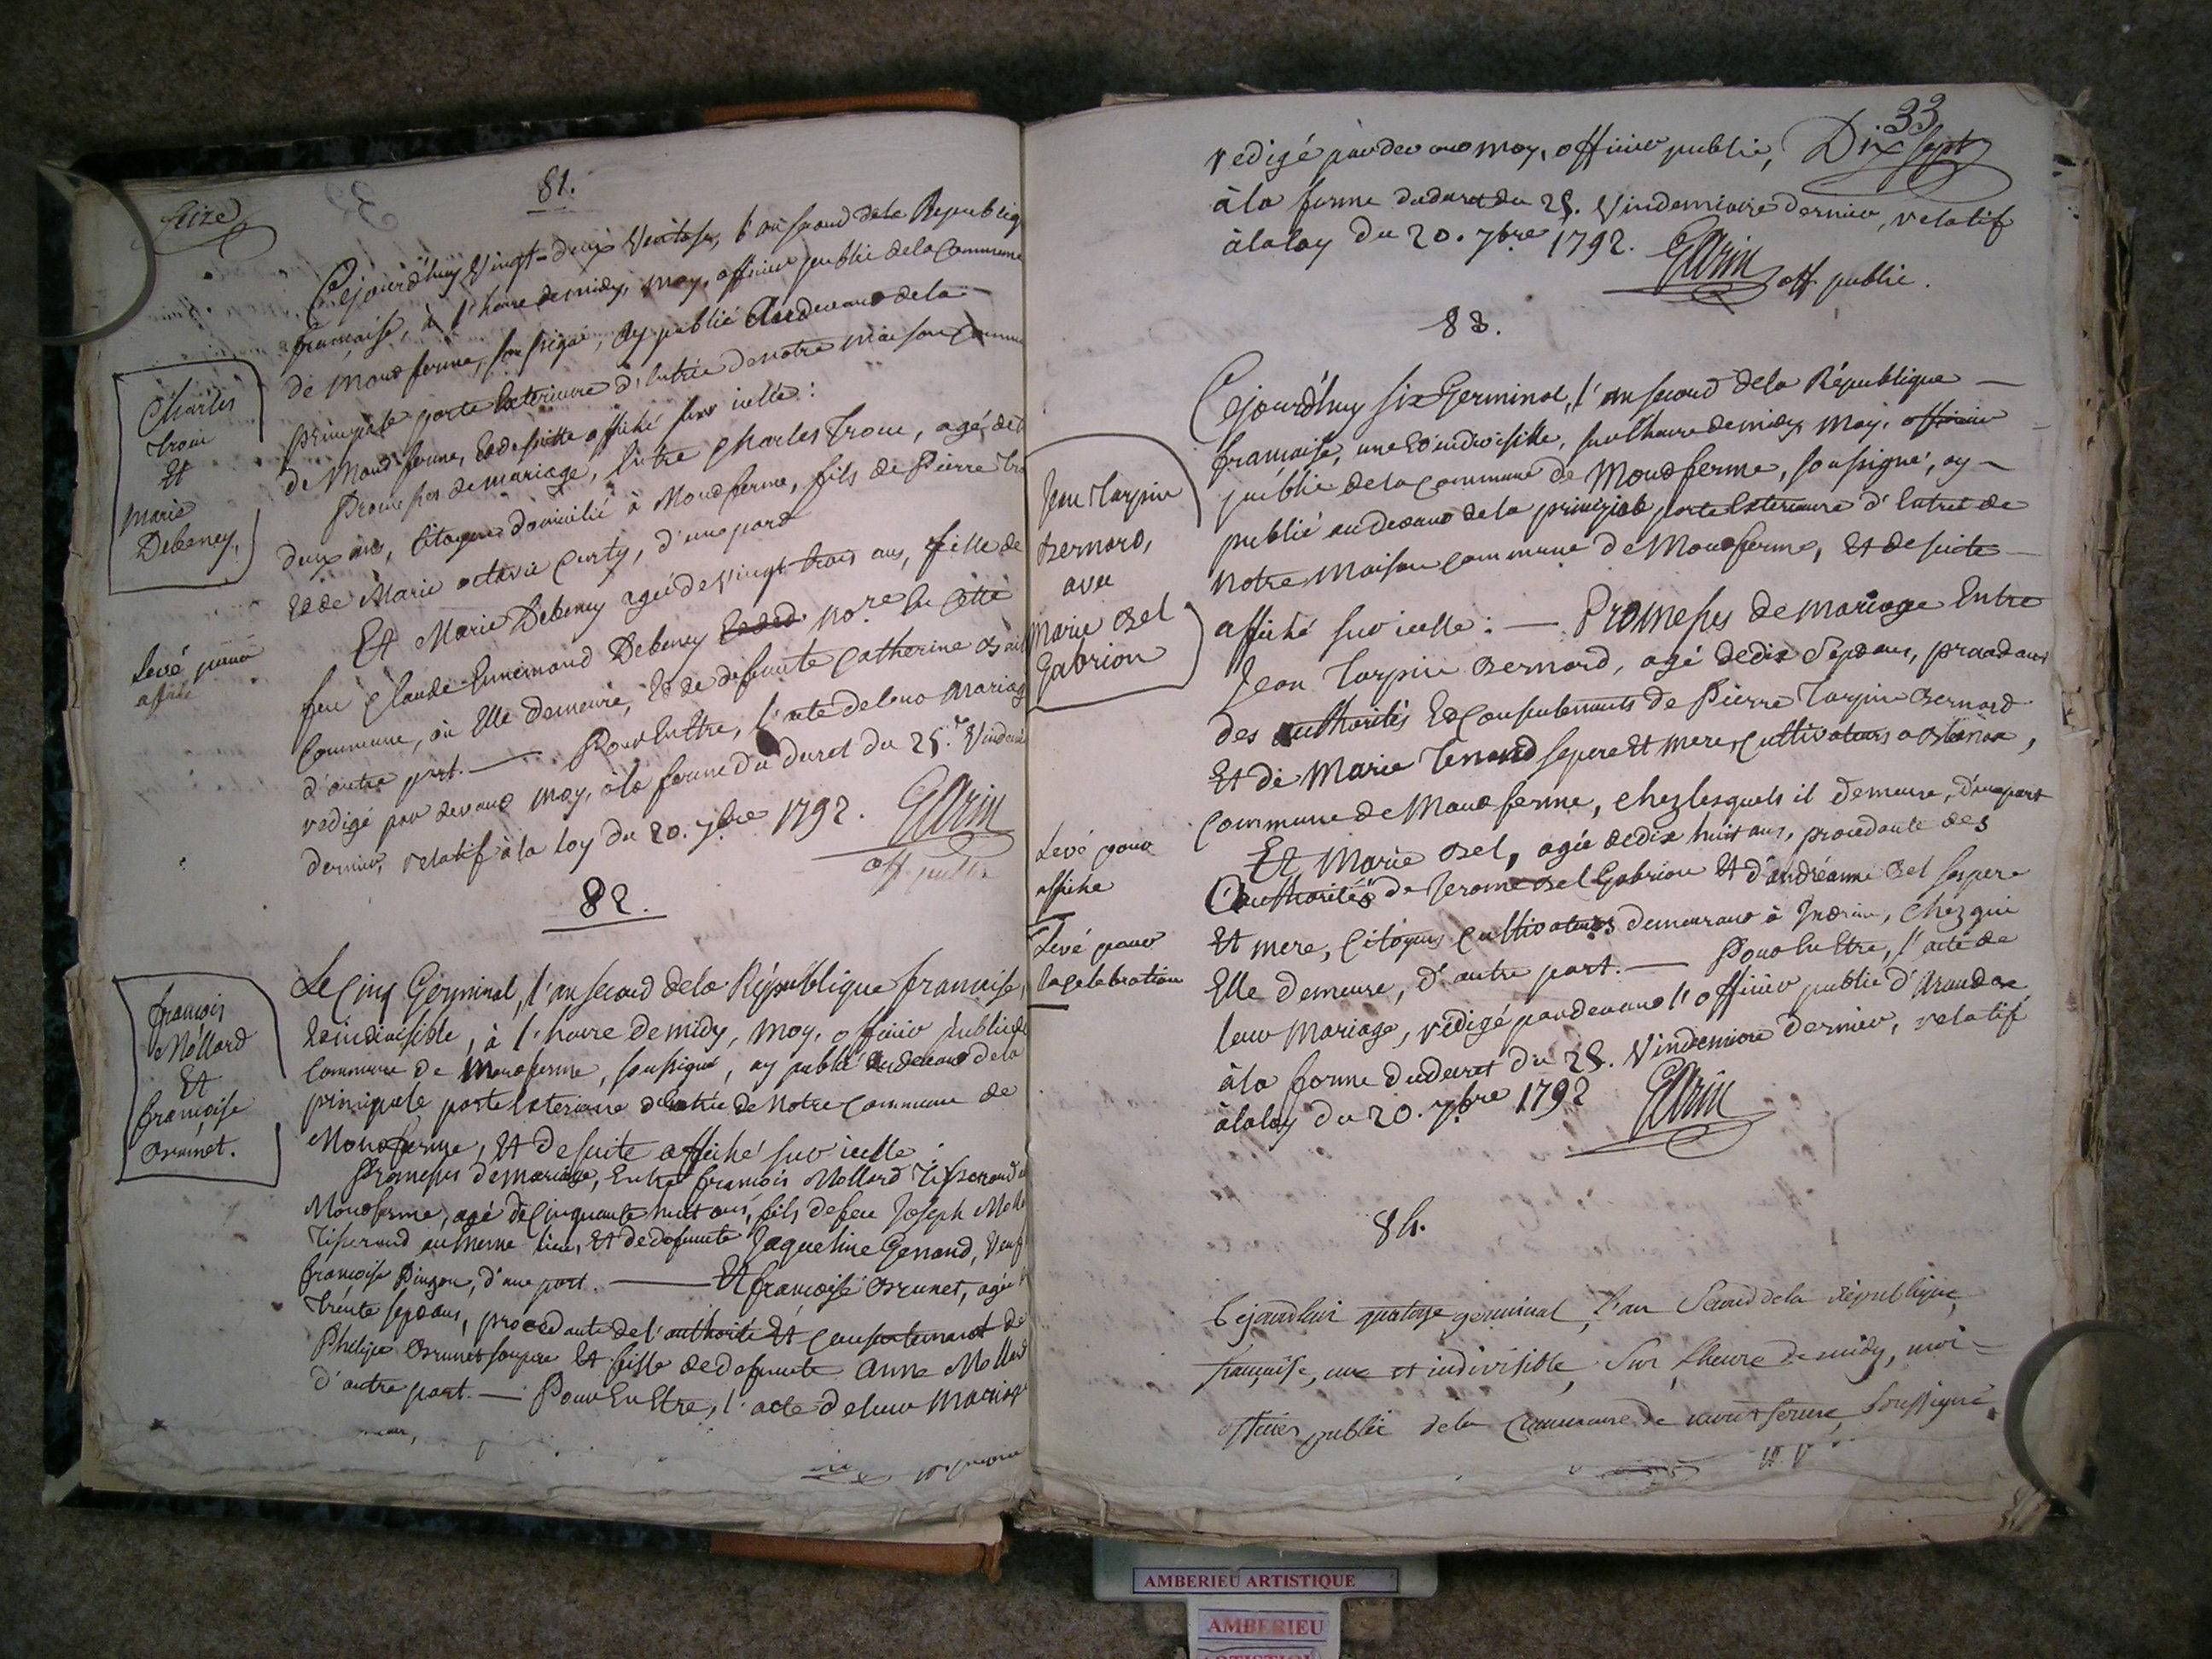 Seize
81.
Cejourd'huy vingt-deux Ventose, l'an second dela Republiq
francaise, à l'heure demidy, moy, officier public dela Commune
de Montferme, soussigné, ay publié Audevant dela
principale porte Exterieure d'Entrée denotre maison Commun
de Montferme, Et desuitte affiché sur icelle :
Promesses demariage, Entre Charles Troin, agé de
deux ans, Citoyen domicilié à Montferme, fils de Pierre
Et de Marie octavie Curty, d'une part
Et Marie Debeney agée de vingt trois ans, fille de
feu Claude Ennemond Debeney no.re En Cette
Commune, où Elle demeure, Et de defunte Catherine
d'autre part. — Pour Entre, l'acte deleur Mariag
redigé par devant moy, àla forme du decret du 25. Vindemi
dernier, relatif àla loy du 20. 7bre 1792. GArin
off. public
Charles
Troin
Et
Marie
Debeney,
Levé pour
affiche
82.
Le Cinq Germinal, l'an second dela République francaise,
Et indivisible, à l'heure demidy, moy, officier public de
Commune de Montferme, soussigné, ay publié Audevant dela
principale porte Exterieure d'Entrée de Notre Commune de
Montferme, Et desuite affiché sur icelle.
Promesses demariage, Entre francois Mollard Tisserand
Montferme, agé de Cinquante huit ans, fils defeu Joseph
Tisserand au meme lieu, Et dedefunte Jaqueline Genand, Veuf
francoise Pingon, d'une part. — Et francoise Brunet, agée
trente sept ans, procedante del'authorité Et Consentement de
Philipe Brunet sonpere Et fille dedefunte Anne Mollard
d'autre part. — Pour En Etre, l'acte deleur Mariage
francois
Mollard
Et
francoise
Brunet.
33
Dix sept
redigé pardevant moy, officier public,
àla forme dudecret du 25. Vindemiaire dernier, relatif
àlaloy du 20. 7bre 1792. GArin
off. public.
83.
Cejourd'huy six Germinal, l'an second dela République —
francaise, une Et indivisible, sur l'heure demidy, moy, officier
public dela Commune de Montferme, soussigné, ay —
publié audevant dela principale porte Exterieure d'Entrée de
notre Maison Commune de Montferme, Et desuite —
affiché sur icelle : — Promesses demariage Entre
Jean Tarpin Bernard, agé dedix Sept ans,
des authorités Et Consentements de Pierre Tarpin Bernard
Et de Marie Tenand sepere Et mere, Cultivateurs
Commune de Montferme, chez lesquels il demeure, d'une part
Et Marie Bel, agée dedix huit ans, procedante des
authorités de Jerome Bel Gabrion Et d'andréanne Bel sespere
Et mere, Citoyens Cultivateurs demeurant à Indrieu, chez qui
Elle demeure, d'autre part. — Pour En Etre, l'acte de
leur Mariage, rédigé pardevant l'officier public d'Arandas
àla forme dudecret du 25. Vindemiaire dernier, relatif
àlaloy du 20. 7bre 1792 GArin
Jean Tarpin
Bernard,
avec
Marie Bel
Gabrion
Levé pour
affiche
Levé pour
lacelebration
84.
Cejourdhui quatorze germinal, l'an Second dela république
française, une et indivisible, Sur l'heure de midy, moi
officier public dela Commune de montferme, Soussigné
AMBERIEU ARTISTIQUE
AMBERIEU
ARTISTIQUE